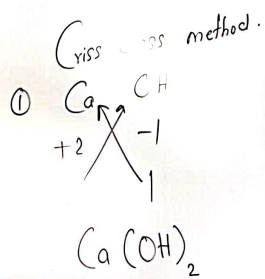 Criss method.
① Ca CH
+2 -1
1
Ca(OH)₂